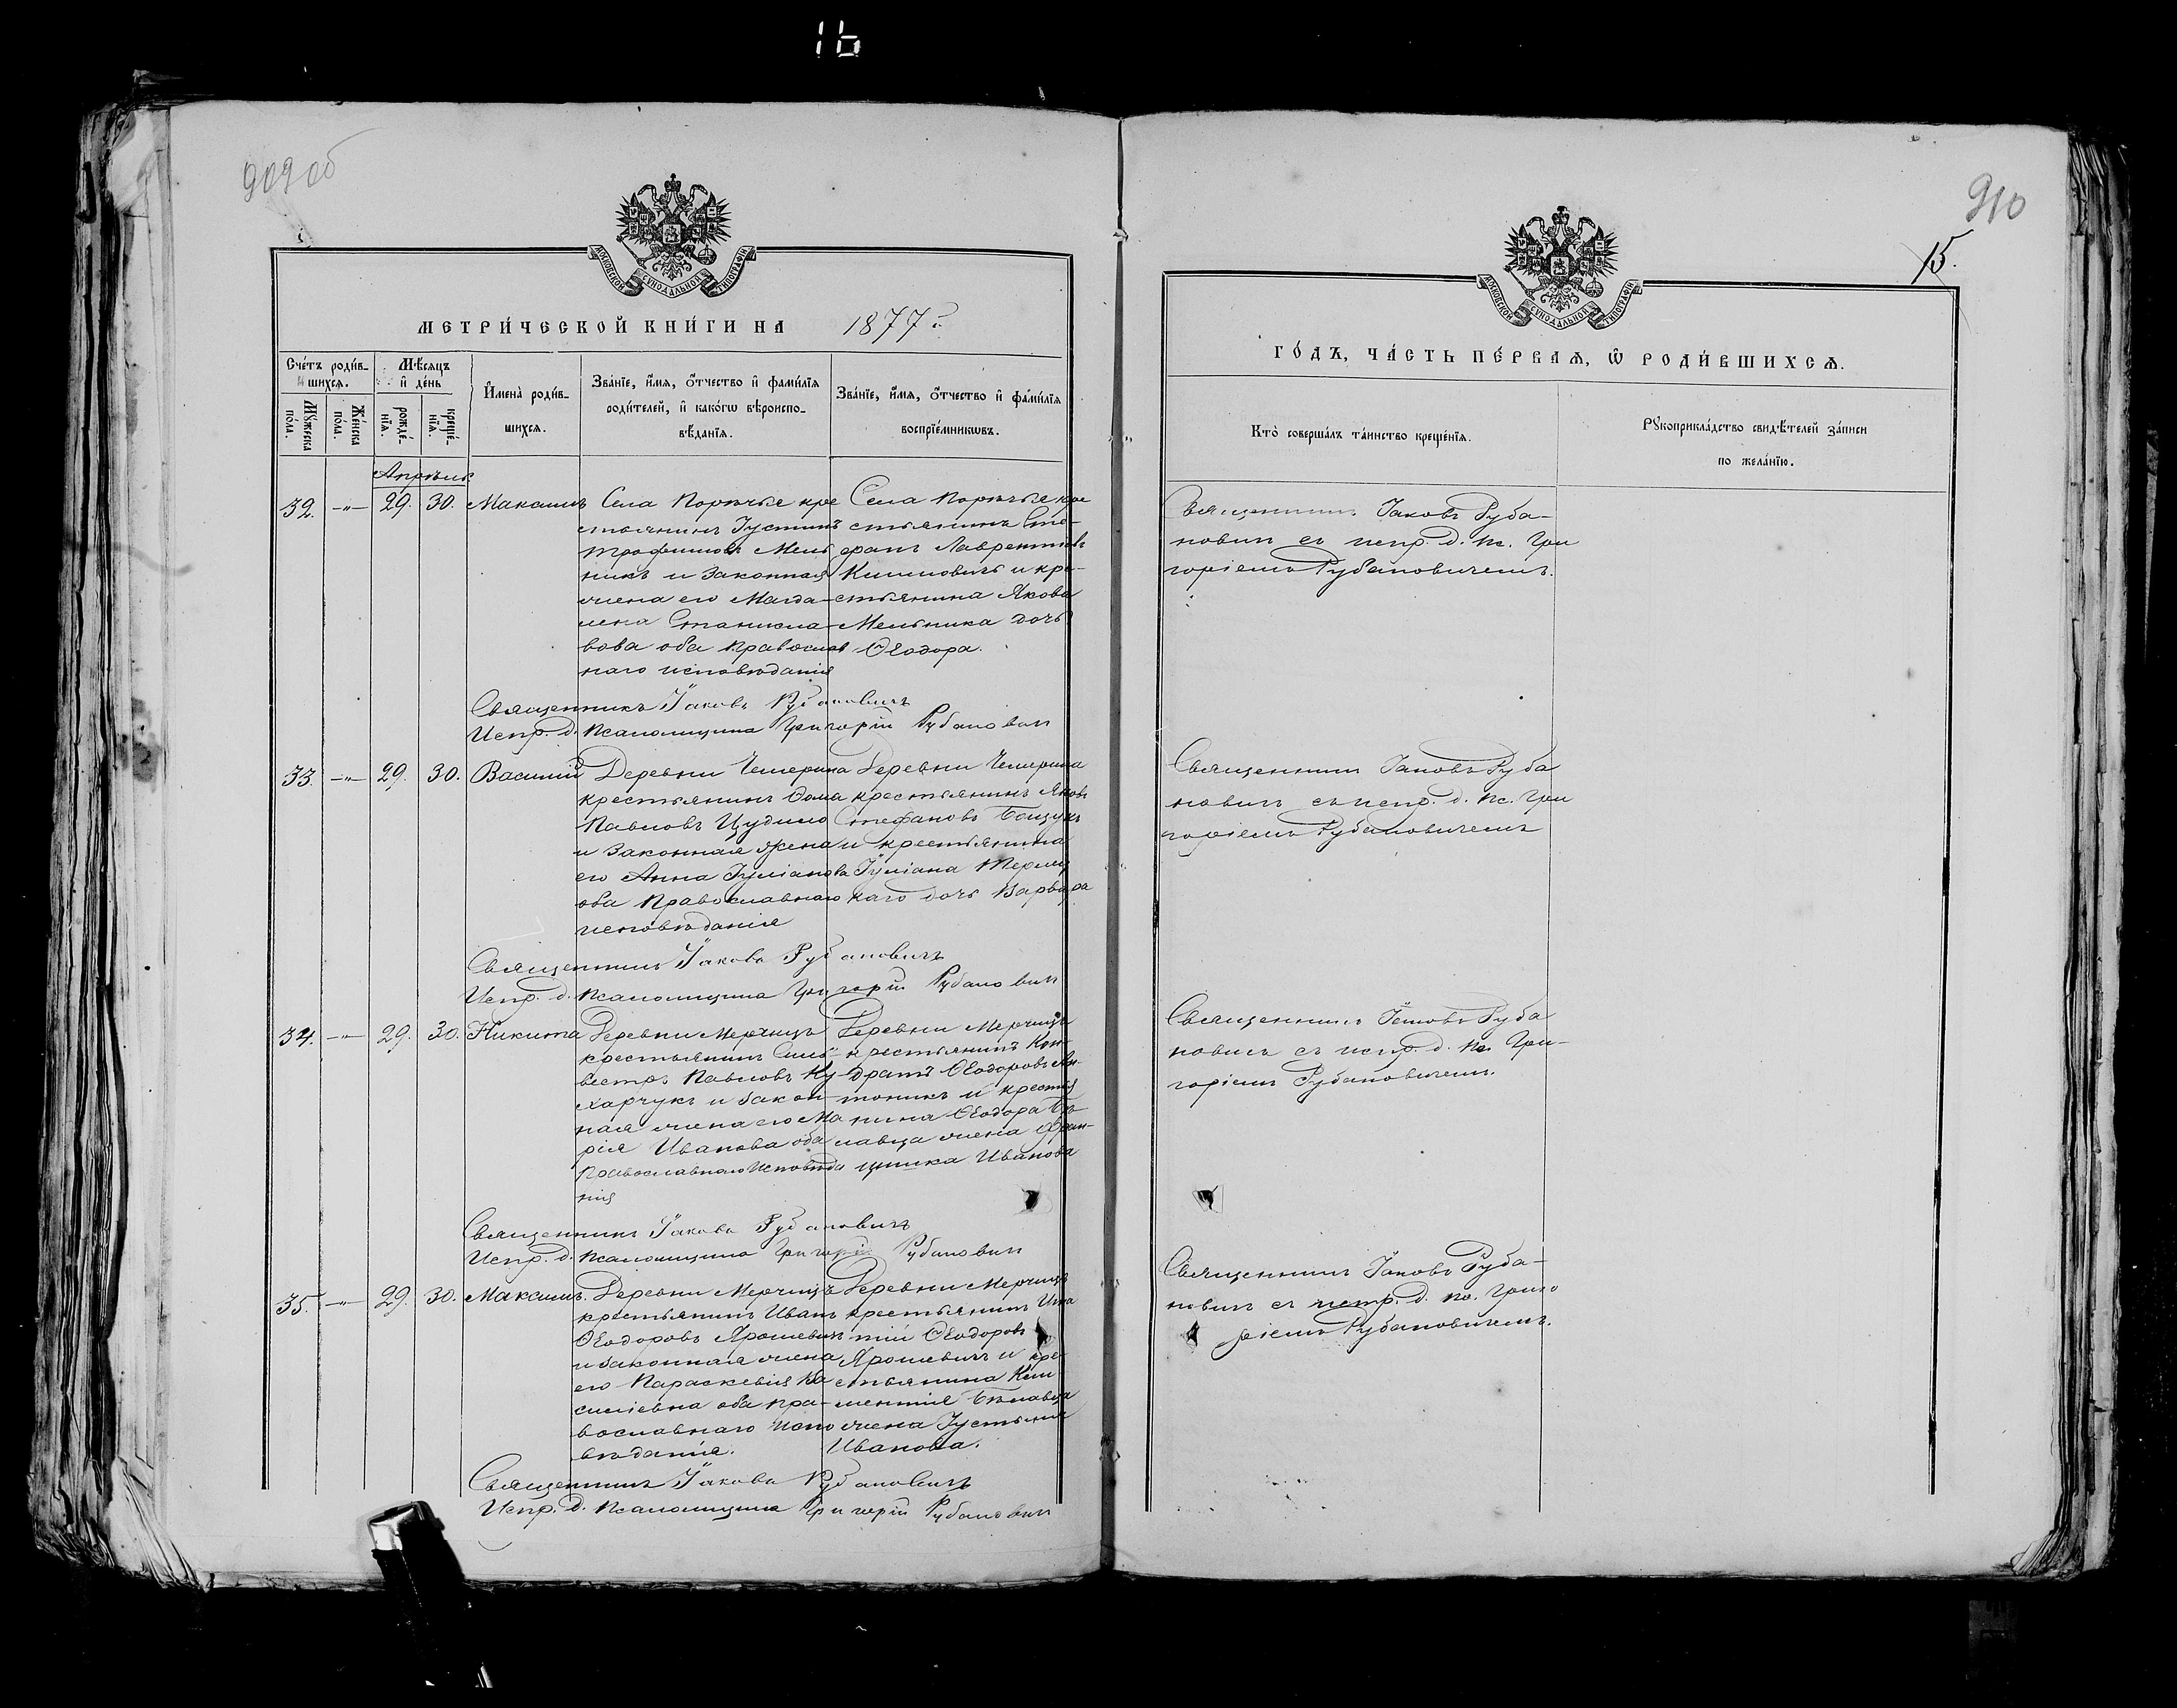 16
909об
МОСКОВСКОЙ СѴНОДАЛЬНОЙ ТИПОГРАФІИ
МЕТРИ́ЧЕСКОЙ КНИ́ГИ НА 1877 г.
Сче́тъ роди́вшихсѧ.
Мѹжеска по́ла.
Же́нска по́ла.
Мѣ́сѧцъ и҆ де́нь
рожде́нїѧ.
креще́нїѧ.
И҆мена̀ роди́вшихсѧ.
Зва́нїе, и҆́мѧ, ѻ҆́тчество и҆ фами́лїѧ родителей, и҆ како́гѡ вѣроисповѣ́данїѧ.
Зва́нїе, и҆́мѧ, ѻ҆́тчество и҆ фами́лїѧ воспрїе́мникѡвъ.
Апрѣль
32. —"— 29. 30. Максимъ
Села Порѣчья кре
стьянинъ Іустинъ
Трофимовъ Мель
никъ и законная
жена его Магда-
лена Станисла-
вова оба Православ
наго исповѣданія
Села Порѣчья кре
стьянинъ Сте-
фанъ Лаврентіевъ
Климовичъ и кре-
стьянина Якова
Мельника дочь
Ѳеодора.
Священникъ Іаковъ Рубановичъ
Испр. д. Псаломщика Григорій Рубанович
33. —"— 29. 30. Василій
Деревни Чемерина
крестьянинъ Ѳома
Павловъ Цудило
и законная жена
его Анна Іуліанова
оба Православнаго
исповѣданія
Деревни Чемерина
крестьянинъ Яковъ
Стефановъ
и крестьянина
Іуліана
наго дочь Варвара
Священникъ Іаковъ Рубановичъ
Испр. д. Псаломщика Григорій Рубанович
34. —"— 29. 30. Никита
Деревни Мерчицъ
крестьянинъ Силь-
вестръ Павловъ Ку-
харчукъ и закон-
ная жена его Ма
рія Иванова оба
Православнаго Исповѣда
нія
Деревни Мерчицъ
крестьянинъ Кон-
дратъ Ѳеодоровъ Ан-
тоникъ и крестья
нина Ѳеодора Бѣ-
лавца жена Фран-
цишка Иванова
Священникъ Іаковъ Рубановичъ
Испр. д. Псаломщика Григорій Рубанович
35. —"— 29. 30. Максимъ.
Деревни Мерчицъ
крестьянинъ Иванъ
Ѳеодоровъ Ярошевич
и законная жена
его Параскевія Ва
силіевна оба пра-
вославнаго Испо
вѣданія.
Деревни Мерчицъ
крестьянинъ Игна
тій Ѳеодоровъ
Ярошевичъ и кре-
стьянина Кли
ментія Бѣлавца
жена Іустинія
Иванова.
Священникъ Іаковъ Рубановичъ
Испр. д. Псаломщика Григорій Рубанович
910
15.
МОСКОВСКОЙ СѴНОДАЛЬНОЙ ТИПОГРАФІИ
ГО́ДЪ, ЧА́СТЬ ПЕ́РВАѦ, Ѽ РОДИ́ВШИХСѦ.
Кто̀ соверша́лъ та́инство креще́нїѧ.
Рꙋкоприкла́дство свидѣ́телей за́писи по жела́нїю.
Священникъ Іаковъ Руба-
новичъ съ испр. д. пс. Гри
горіемъ Рубановичемъ.
Священникъ Іаковъ Руба
новичъ съ испр. д. пс. Гри
горіемъ Рубановичемъ
Священникъ Іаковъ Руба
новичъ съ испр. д. пс. Гри-
горіемъ Рубановичемъ.
Священникъ Іаковъ Руба-
новичъ съ испр. д. пс. Григо
ріемъ Рубановичемъ.